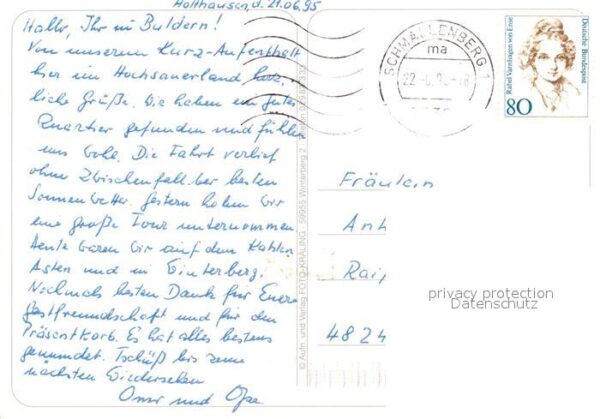 Holthausen, d. 21.06.95
Hallo, Ihr in Buldern!
Von unserem Kurz-Aufenthalt
hier im Hochsauerland herz-
liche Grüße. Wir haben ein gutes
Quartier gefunden und fühlen
uns wohl. Die Fahrt verlief
ohne Zwischenfall bei besten
Sonnenwetter. Gestern haben wir
eine große Tour unternommen.
Heute waren wir auf dem Kahlen
Asten und in Winterberg.
Nochmals besten Dank für Eure
Gastfreundschaft und für den
Präsentkorb. Es hat alles bestens
gemundet. Tschüß bis zum
nächsten Wiedersehen
Oma und Opa
© Aufn. und Verlag FOTO-KRÄLING · 59955 Winterberg 2
SCHMALLENBERG 1
ma
Rahel Varnhagen von Ense
Deutsche Bundespost
80
Fräulein
Anh
Rai
4824
privacy protection
Datenschutz